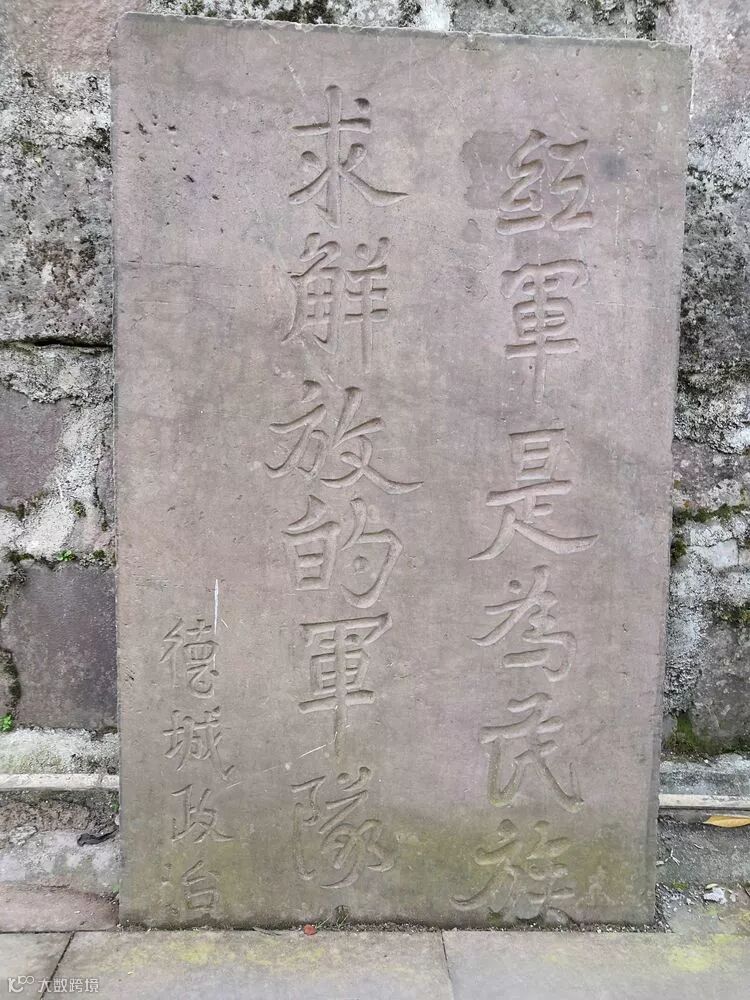 红軍是為民族
求解放的軍隊
德城政治
大数跨境